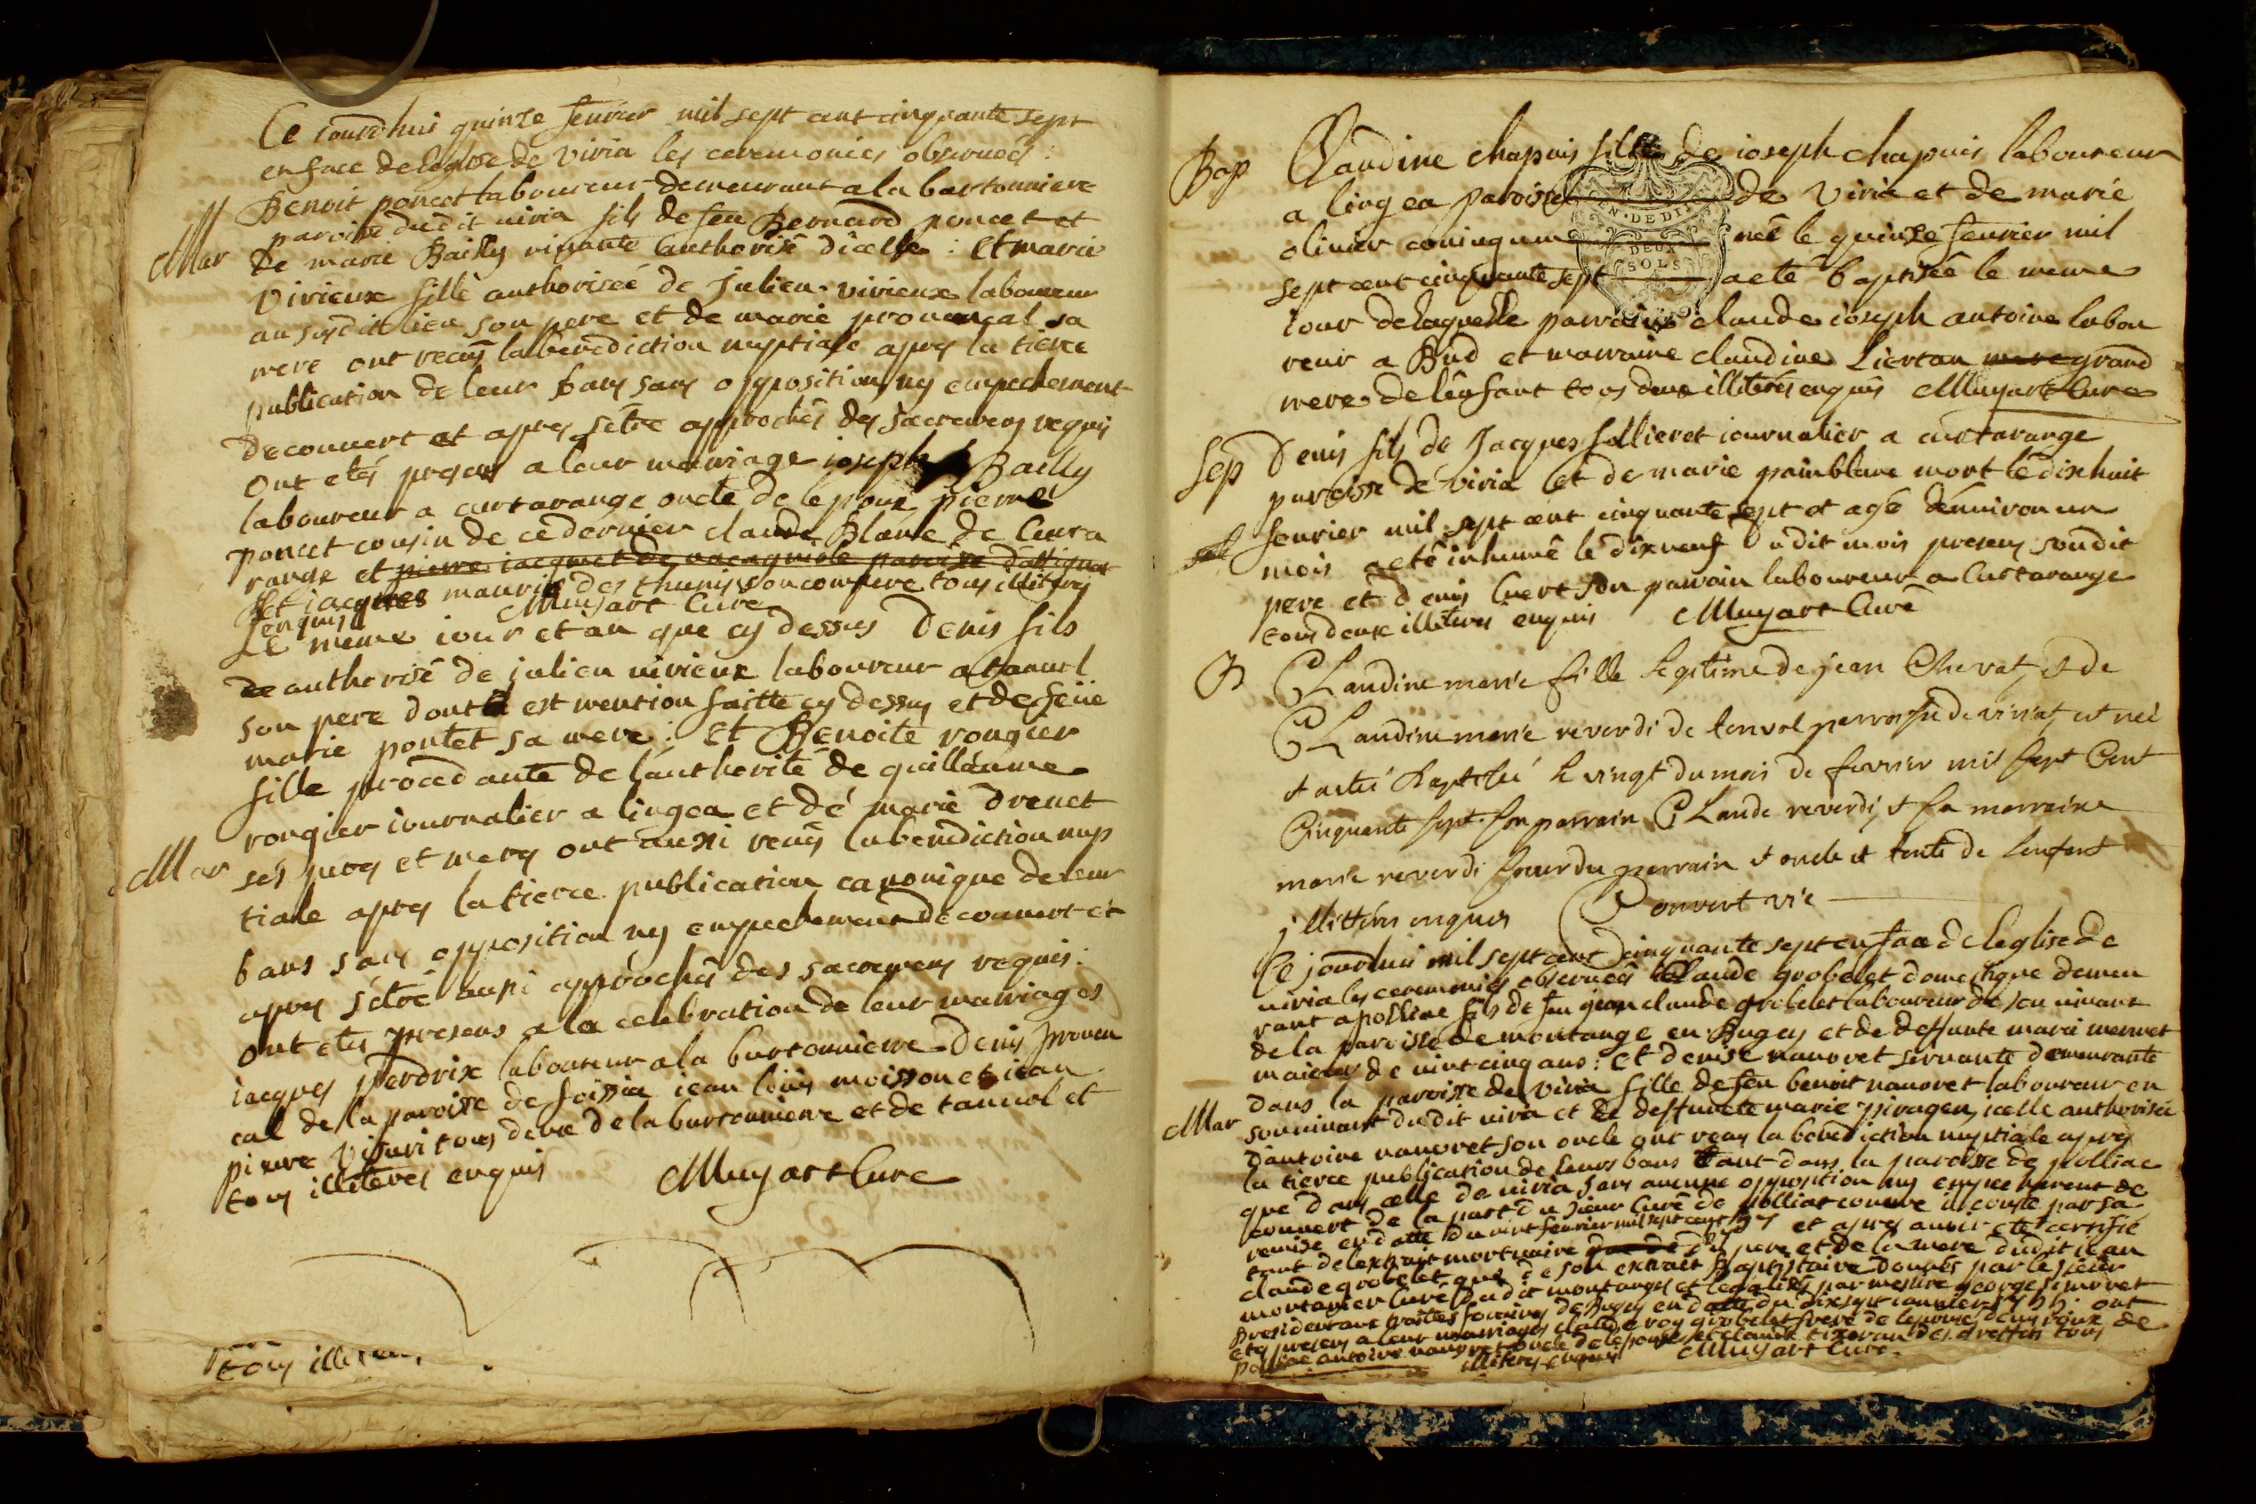 Ce iourdhui quinze feurier mil sept cent cinquante sept
en face de leglise de viria les ceremonies obseruées :
Benoit poncet laboureur demeurant a la bertonniere
paroisse dudit uiria fils de feu Bernard poncet et
Mar
de marie Bailly viuante authorisé dicelle : Et marie
Virieux fille authorisée de Julien virieux laboureur
au susdit lieu son pere et de marie prouençal sa
mere ont reçus la benediction nuptiale apres la tierce
publication de leur bans sans opposition ny empechement
decouuert et apres sêtre approchés des sacremens requis
Ont etés presens a leur mariage ioseph Bailly
laboureur a curtarange oncle de lépoux pierre
poncet cousin de ce dernier claude Blanc de Curta
range et pierre iacquet de paroisse dattignat
et iacques maurice des thunis son compere tous illiteres
enquis Muyart Curé
Le meme iour et an que cy dessus Denis fils
de authorisé de julien uirieux laboureur a tanuol
son pere dont est mention faitte cy dessus et de feüe
marie pontet sa mere : Et Benoite rougier
fille procedante de lauthorité de guillaume
rougier iournalier a lingea et de marie drenet
Mar
ses peres et meres ont aussi reçus la benediction nup
tiale apres la tierce publication canonique de leur
bans sans opposition ny empechement decouuert et
apres s'être aussi approchés des sacremens requis :
Ont etés presens a la celebration de leur mariages
iacques perdrix laboureur a la burtonniere Denis prouen
cal de la paroisse de foissia iean louis moisson et iean
pierre tous deux de la burtonniere et de tanuol et
tous illiteres enquis Muyart Cure
tous illiteres
Bap Claudine chapuis fille de ioseph chapuis laboureur
a lingea paroisse de Viria et de marie
oliuier coniugum née le quinze feurier mil
sept cent cinquante sept a eté baptisée le meme
EN · DE DI
DEUX
SOLS
iour de laquelle parrain claude ioseph antoine labou
reur a Bud et marraine claudine Liertan mere grand
mere de lénfant tous deux illiterés enquis Muyart Cure
Sep Denis fils de Jacques sollieret iournalier a curtarange
paroisse de viria et de marie painblanc mort le dixhuit
feurier mil sept cent cinquante sept et agé dénuiron un
mois a eté inhumé le dixneuf dudit mois presens sondit
pere et denis Cuert son parrain laboureur a Curtarange
tous deux illiteres enquis Muyart Curé
B Claudine marie fille legitime de jean Chevat, et de
Claudine marie reverdi de tenvol parroisse de viriat est neé
et a esté baptisée le vingt du mois de fevrier mil sept Cent
Cinquante sept. son parrain Claude reverdi, et sa marraine
marie reverdi soeur du parrain et oncle et tante de lenfant
jllitteres enquis Convert vic
Ce jourdhui mil sept cent cinquante sept en face de leglise de
uiria les ceremonies obseruées Claude grobelet domestique demeu
rant a polliac fils de feu jean claude grobelet laboureur de son uiuant
de la paroisse de montange en Bugey et de deffunte marie mermet
maieur de uint cinq ans : Et denise nauoret seruante demeurante
dans la paroisse de Viria fille de feu benoit nauoret laboureur en
Mar
son uiuant dudit uiria et de deffuncte marie piroger, icelle authorisée
dantoine nauoret son oncle ont reçus la benediction nuptiale apres
la tierce publication de leurs bans tant dans la paroisse de polliac
que dans celle de uiria sans aucune opposition ny empechement de
couuert de la part du sieur Curé de polliat comme il conste par sa
remise en datte du vint feurier mil sept cent 57 et apres auoir eté certifié
tant de lextrait mortuaire du pere et de la mere dudit iean
claude grobelet que de son extrait Baptistaire donnés par le sieur
mortanier Curé dudit montanges et legalisés par messire george simonet
president aux traittes foraines de Bugey en datte du dixsept ianuier 1755 : ont
etés presens a leur mariages claude roy grobelet frere de lepoux denis roux de
polliac antoine nauoret oncle de lépouse et claude tixeran des greffets tous
illiteres enquis Muyart Cure